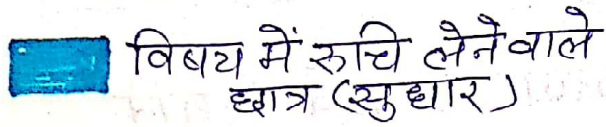 विषय में रुचि लेने वाले
छात्र (सुधार)